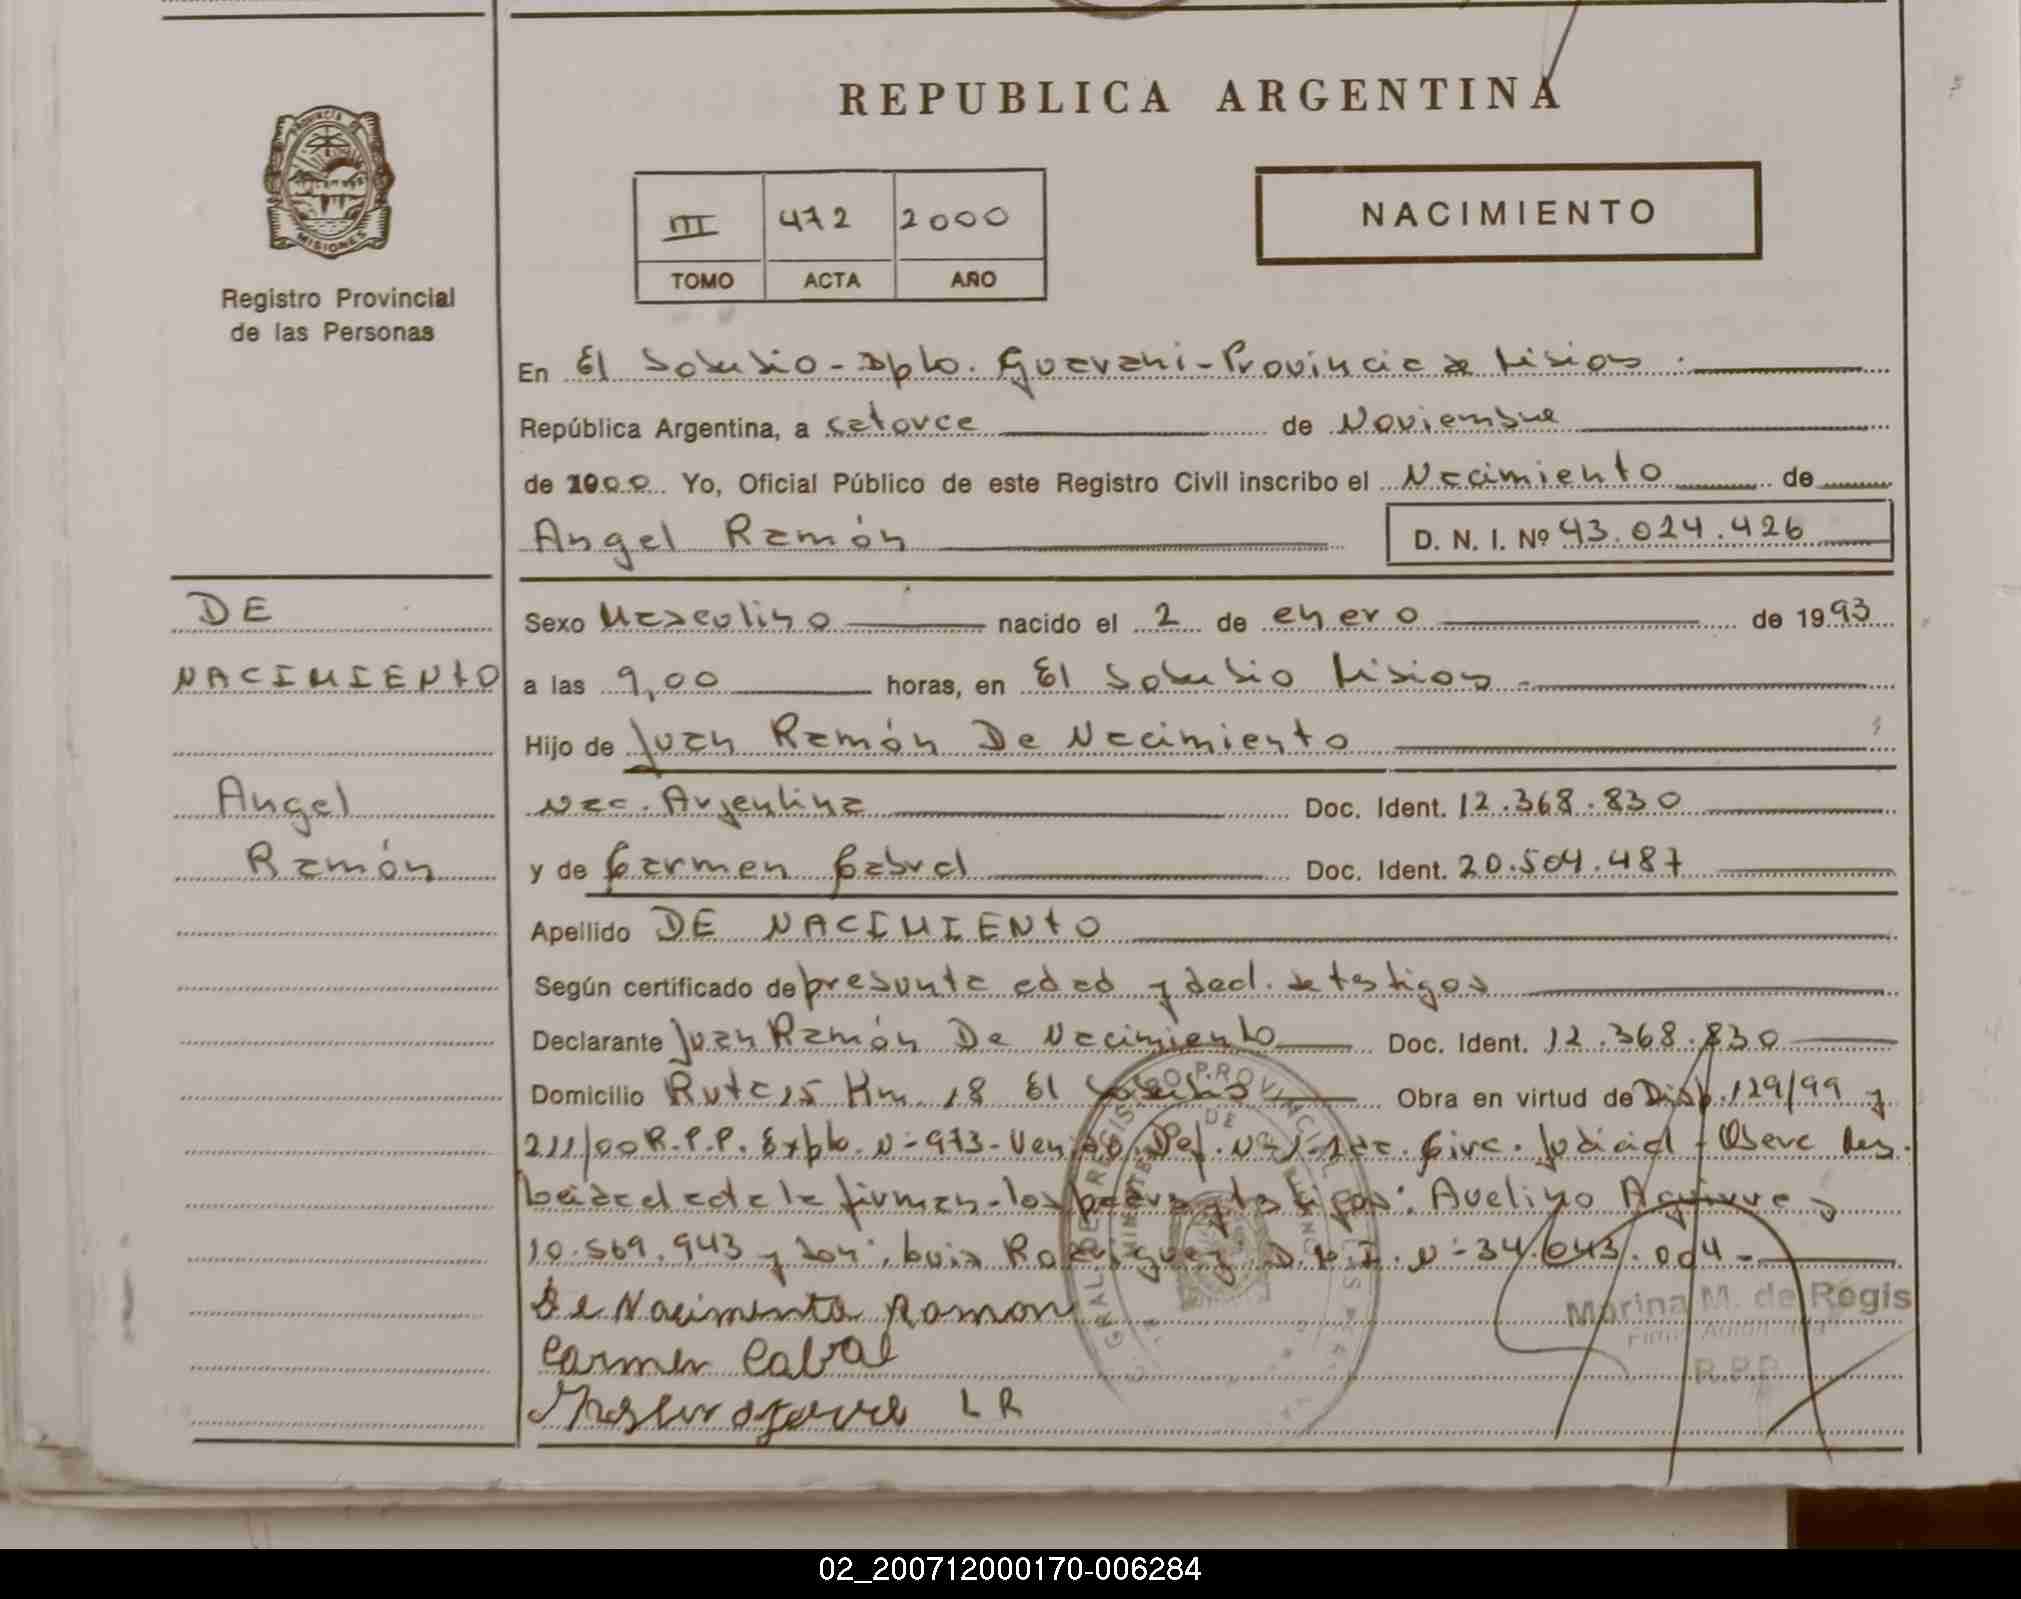 REPUBLICA ARGENTINA
PROVINCIA DE
MISIONES
Registro Provincial
de las Personas
III 472 2000
TOMO ACTA AÑO
NACIMIENTO
En El Soberbio - Dpto. Guaraní - Provincia de Misiones.
República Argentina, a catorce de Noviembre
de 2000 Yo, Oficial Público de este Registro Civil inscribo el Nacimiento de
Angel Ramón D. N. I. Nº 43.024.426
DE
NACIMIENTO
Angel
Ramón
Sexo Masculino nacido el 2 de enero de 1993
a las 9,00 horas, en El Soberbio Misiones.
Hijo de Juan Ramón De Nacimiento
Nac. Argentina Doc. Ident. 12.368.830
y de Carmen Cabral Doc. Ident. 20.504.487
Apellido DE NACIMIENTO
Según certificado de presunta edad y decl. de testigos
Declarante Juan Ramón De Nacimiento Doc. Ident. 12.368.830
Domicilio Ruta 15 Km. 18 El Soberbio Obra en virtud de Disp. 129/99 y
211/00 R.P.P. Expte. Nº 973 - Def. Nº 1 - Circ. Judicial -
el acta la firman - los : Avelino Aguirre
10.569.943 y don: Luis Rodriguez D.N.I. Nº 34.043.004 -
De Nacimento Ramon
Carmen Cabral
L R
Marina M. de Regis
R.P.P.
02_200712000170-006284